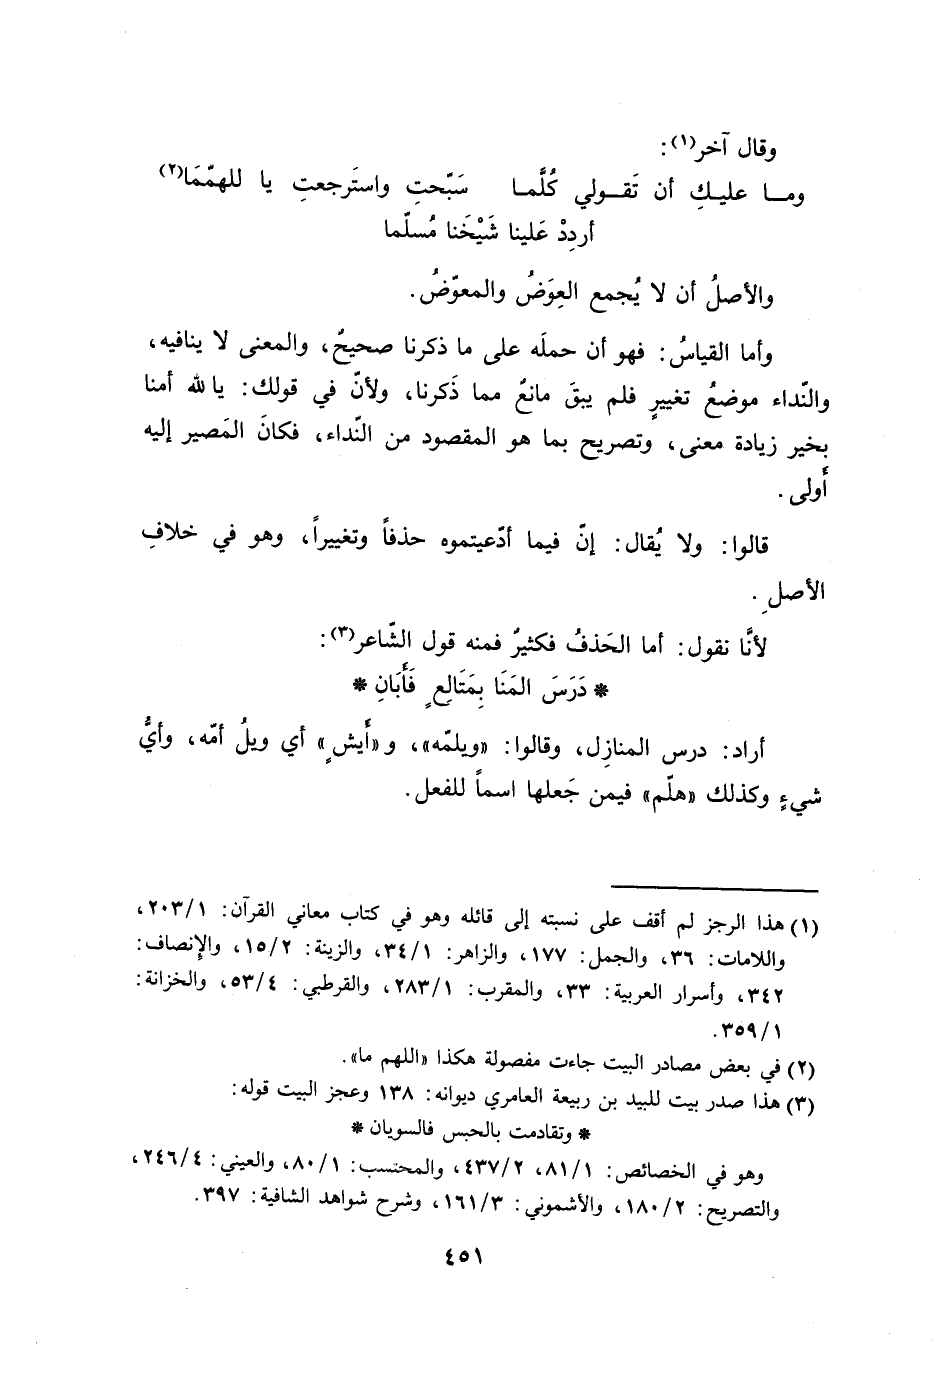 وقال آخر(١):
ومـا عليـكِ أن تَقـولي كُلَّمـا سَبّحتِ واستَرجعتِ يا للهمّمَا(٢)
أردِدْ عَلينا شَيْخَنا مُسلّما
والأصلُ أن لا يُجمع العِوَضُ والمعوّضُ.
وأما القياسُ: فهو أن حملَه على ما ذكرنا صحيحٌ، والمعنى لا ينافيه،
والنّداء موضعُ تغييرٍ فلم يبقَ مانعٌ مما ذَكرنا، ولأنّ في قولك: يا لله أمنا
بخير زيادة معنى، وتصريح بما هو المقصود من النّداء، فكانَ المَصير إليه
أَولى.
قالوا: ولا يُقال: إنّ فيما أدّعيتموه حذفاً وتغييراً، وهو في خلافِ
الأصلِ.
لأنَّا نقول: أما الحَذفُ فكثيرٌ فمنه قول الشّاعر(٣):
* دَرَسَ المَنَا بِمَتَالِعٍ فَأَبَانِ *
أراد: درس المنازِل، وقالوا: «ويلمّه»، و«أَيشٍ» أي ويلُ أمّه، وأيُّ
شيءٍ وكذلك «هلّم» فيمن جَعلها اسماً للفعل.
(١) هذا الرجز لم أقف على نسبته إلى قائله وهو في كتاب معاني القرآن: ٢٠٣/١،
واللامات: ٣٦، والجمل: ١٧٧، والزاهر: ٣٤/١، والزينة: ١٥/٢، والإنصاف:
٣٤٢، وأسرار العربية: ٣٣، والمقرب: ٢٨٣/١، والقرطبي: ٥٣/٤، والخزانة:
٣٥٩/١.
(٢) في بعض مصادر البيت جاءت مفصولة هكذا «اللهم ما».
(٣) هذا صدر بيت للبيد بن ربيعة العامري ديوانه: ١٣٨ وعجز البيت قوله:
* وتقادمت بالحبس فالسوبان *
وهو في الخصائص: ٨١/١، ٤٣٧/٢، والمحتسب: ٨٠/١، والعيني: ٢٤٦/٤،
والتصريح: ١٨٠/٢، والأشموني: ١٦١/٣، وشرح شواهد الشافية: ٣٩٧.
٤٥١